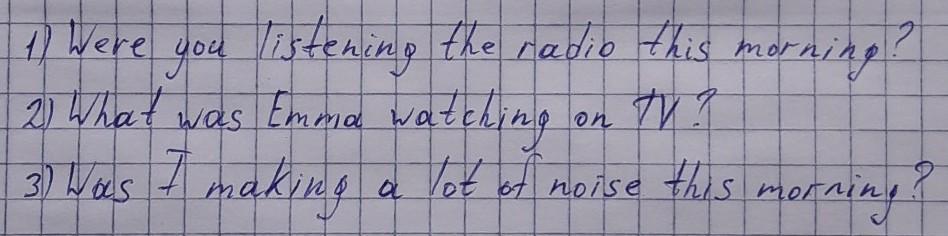 1) Were you listening the radio this morning?
2) What was Emma watching on TV?
3) Was I making a lot of noise this morning?